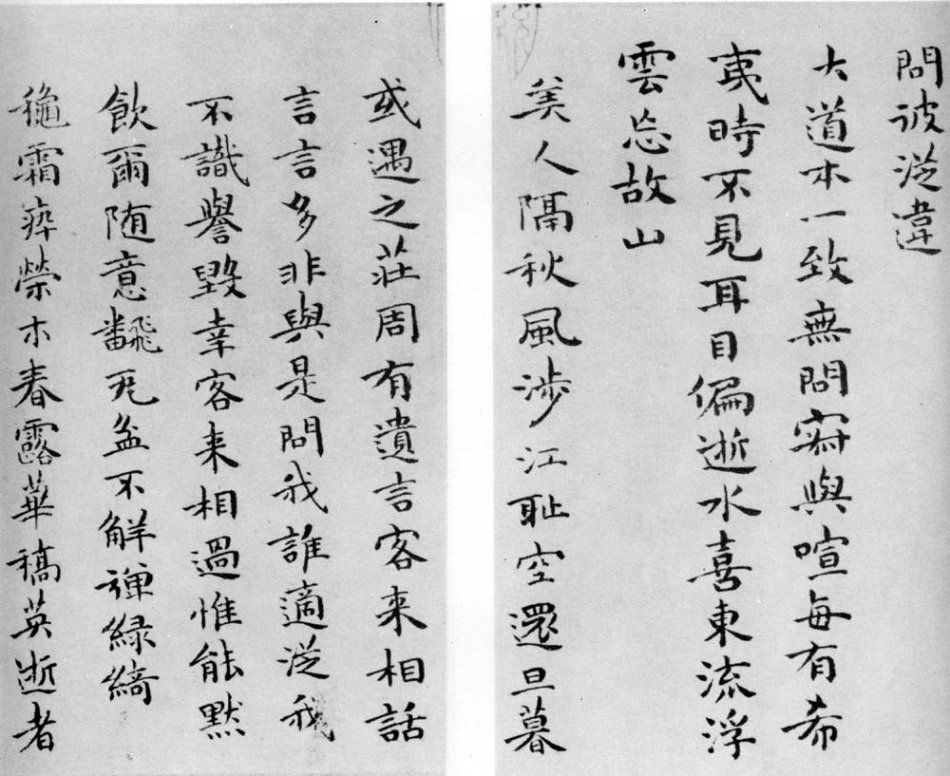 問彼從違
大道本一致無問寂與喧每有希
夷時不見耳目偏逝水喜東流浮
雲忘故山
美人隔秋風涉江耻空還旦暮
或遇之莊周有遺言客来相話
言言多非與是問我誰適從我
不識譽毀幸客来相過惟能默
飲爾随意飜瓦盆不解彈綠綺
穐霜瘁榮木春露華稿英逝者